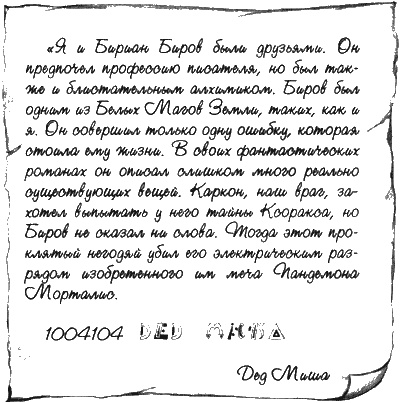 «Я и Бириан Биров были друзьями. Он
предпочел профессию писателя, но был так-
же и блистательным алхимиком. Биров был
одним из Белых Магов Земли, таких, как и
я. Он совершил только одну ошибку, которая
стоила ему жизни. В своих фантастических
романах он описал слишком много реально
существующих вещей. Каркон, наш враг, за-
хотел выпытать у него тайны Ксоракса, но
Биров не сказал ни слова. Тогда этот про-
клятый негодяй убил его электрическим раз-
рядом изобретенного им меча Пандемона
Морталис.
1004104 DED
Дед Миша